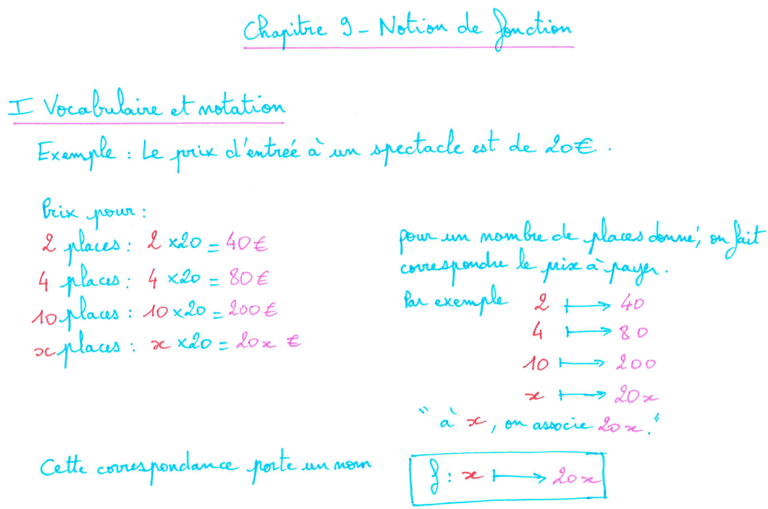 Chapitre 9 - Notion de fonction
I Vocabulaire et notation
Exemple : Le prix d'entrée à un spectacle est de 20€.
Prix pour :
2 places : 2 ×20 = 40€
4 places : 4 ×20 = 80€
10 places : 10 ×20 = 200€
x places : x ×20 = 20x €
pour un nombre de places donné, on fait
correspondre le prix à payer.
Par exemple 2 ⟼ 40
4 ⟼ 80
10 ⟼ 200
x ⟼ 20x
"à x, on associe 20x."
Cette correspondance porte un nom
f : x ⟼ 20x